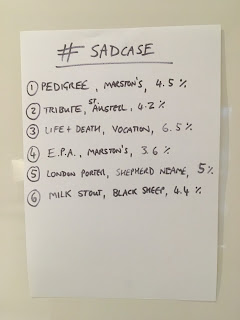 # SADCASE
① PEDIGREE, MARSTON'S, 4.5 %
② TRIBUTE, ST. AUSTELL, 4.2 %
③ LIFE + DEATH, VOCATION, 6.5 %
④ E.P.A., MARSTON'S, 3.6 %
⑤ LONDON PORTER, SHEPHERD NEAME, 5%
⑥ MILK STOUT, BLACK SHEEP, 4.4 %